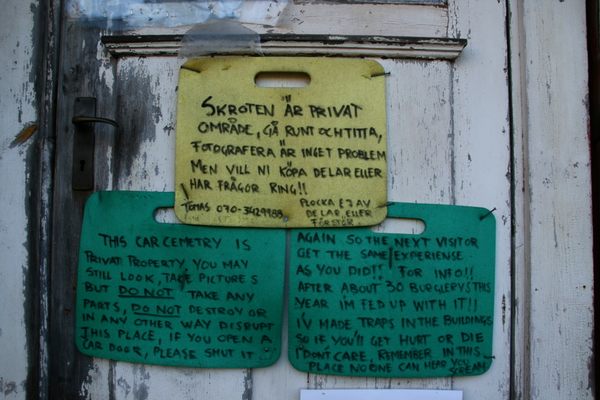 SKROTEN ÄR PRIVAT
OMRÅDE, GÅ RUNT OCH TITTA,
FOTOGRAFERA ÄR INGET PROBLEM
MEN VILL NI KÖPA DELAR ELLER
HAR FRÅGOR RING!!
TOMAS 070-3429988
PLOCKA EJ AV
DELAR, ELLER
FÖRSTÖR
THIS CAR CEMETRY IS
PRIVAT PROPERTY, YOU MAY
STILL LOOK, TAKE PICTURES
BUT DO NOT TAKE ANY
PARTS, DO NOT DESTROY OR
IN ANY OTHER WAY DISRUPT
THIS PLACE, IF YOU OPEN A
CAR DOOR, PLEASE SHUT IT
AGAIN SO THE NEXT VISITOR
GET THE SAME EXPERIENSE
AS YOU DID!! FOR INFO!!
AFTER ABOUT 30 BURGLERYS THIS
YEAR I'M FED UP WITH IT!!
I'V MADE TRAPS IN THE BUILDINGS
SO IF YOU'LL GET HURT OR DIE
I DON'T CARE, REMEMBER IN THIS
PLACE NO ONE CAN HEAR YOU
SCREAM